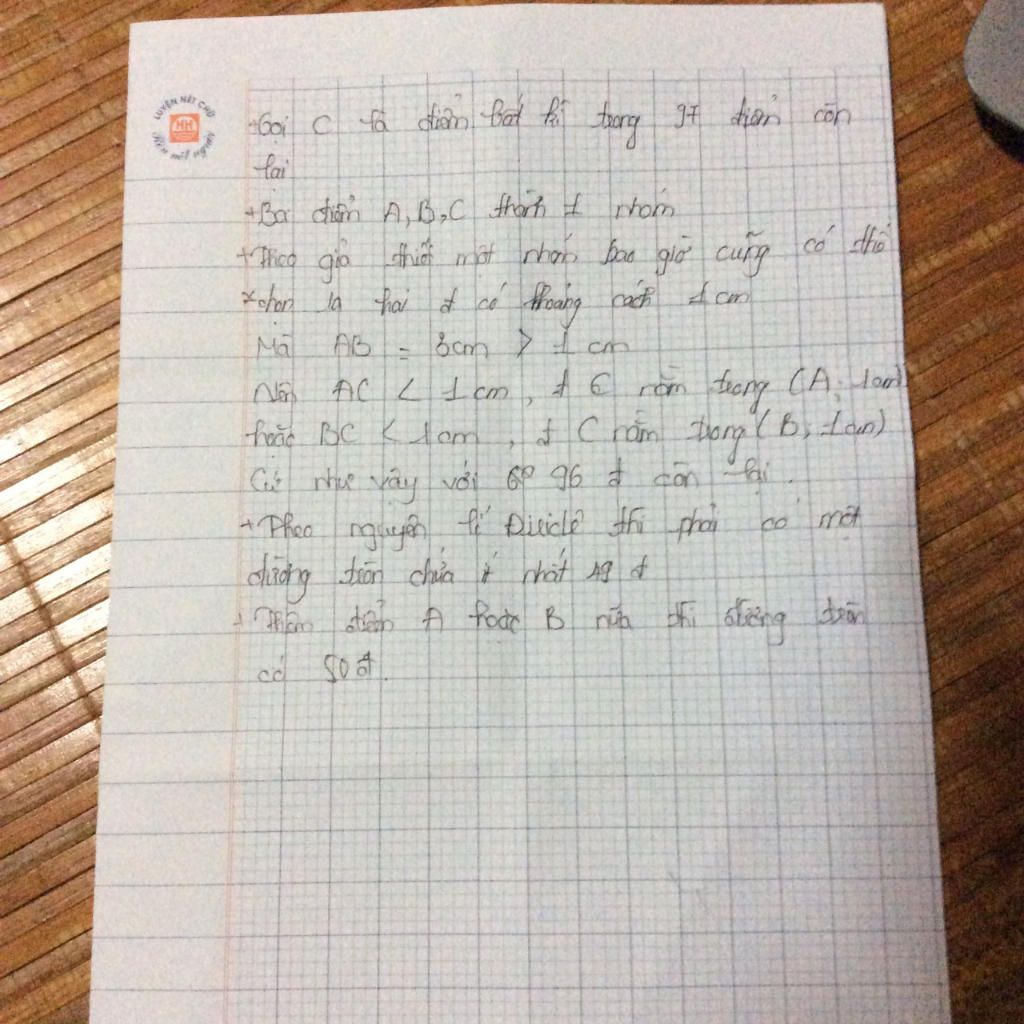 LUYỆN NÉT CHỮ
RÈN NẾT NGƯỜI
+Gọi C là điểm bất kì trong 97 điểm còn
lại
+Ba điểm A, B, C thành 1 nhóm
+Theo giả thiết một nhóm bao giờ cũng có thể
*chọn ra hai đ có khoảng cách 1 cm
Mà AB = 3cm > 1 cm
Nên AC < 1 cm, đ C nằm trong (A; 1cm)
hoặc BC < 1cm, đ C nằm trong (B; 1cm)
Cứ như vậy với 96 đ còn lại.
+Theo nguyên lí Điriclê thì phải có một
đường tròn chứa ít nhất 49 đ
+ Thêm điểm A hoặc B nữa thì đường tròn
có 50 đ.